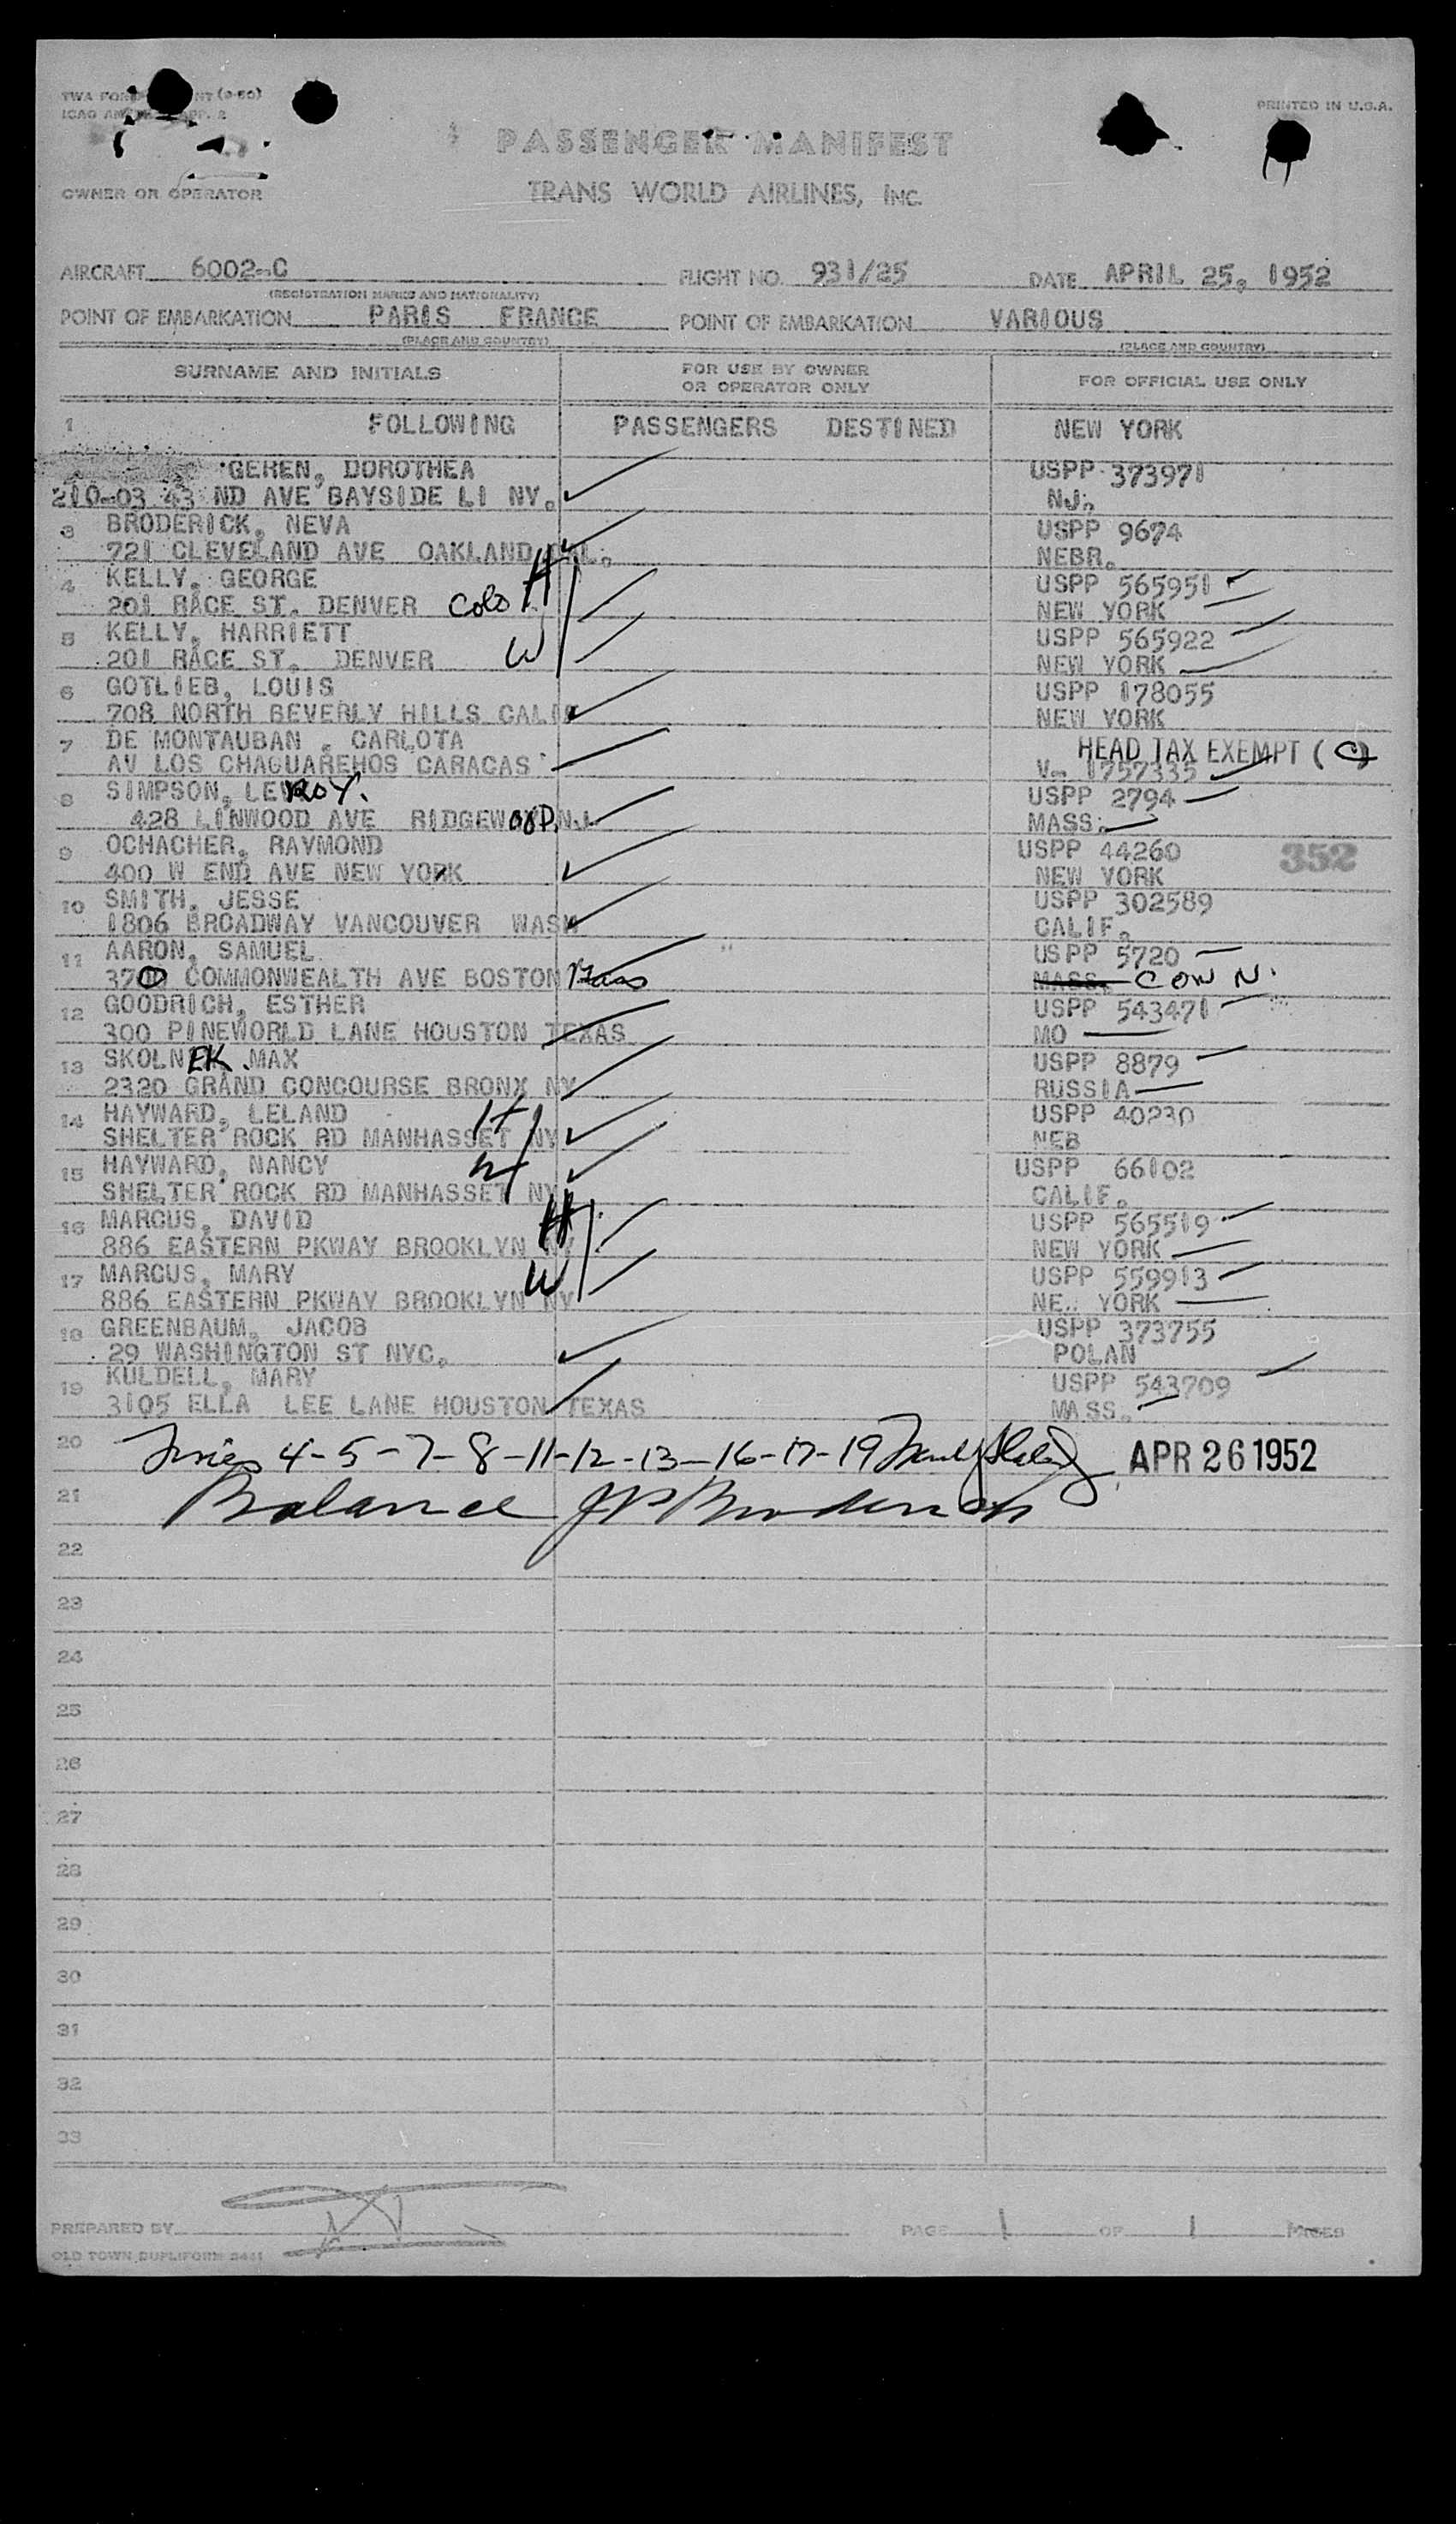 TWA FOR NT (9-50)
ICAO AN APP. 2
PRINTED IN U.S.A.
PASSENGER MANIFEST
OWNER OR OPERATOR
TRANS WORLD AIRLINES, INC.
AIRCRAFT 6002-C FLIGHT NO. 931/25 DATE APRIL 25, 1952
(REGISTRATION MARKS AND NATIONALITY)
POINT OF EMBARKATION PARIS FRANCE POINT OF EMBARKATION VARIOUS
(PLACE AND COUNTRY) (PLACE AND COUNTRY)
SURNAME AND INITIALS FOR USE BY OWNER OR OPERATOR ONLY FOR OFFICIAL USE ONLY
1 FOLLOWING PASSENGERS DESTINED NEW YORK
GEHEN, DOROTHEA USPP 373971
210-03 43 ND AVE BAYSIDE LI NY. NJ.
3 BRODERICK, NEVA USPP 9674
721 CLEVELAND AVE OAKLAND CAL. NEBR.
4 KELLY, GEORGE H USPP 565951
201 RACE ST. DENVER Colo NEW YORK
5 KELLY, HARRIETT USPP 565922
201 RACE ST. DENVER W NEW YORK
6 GOTLIEB, LOUIS USPP 178055
708 NORTH BEVERLY HILLS CALIF NEW YORK
7 DE MONTAUBAN , CARLOTA HEAD TAX EXEMPT (C)
AV LOS CHAGUAREHOS CARACAS V- 1757335
8 SIMPSON, LEROY. USPP 2794
428 LINWOOD AVE RIDGEWOOD.NJ. MASS.
9 OCHACHER, RAYMOND USPP 44260 352
400 W END AVE NEW YORK NEW YORK
10 SMITH, JESSE USPP 302589
1806 BROADWAY VANCOUVER WASH CALIF.
11 AARON, SAMUEL USPP 5720
370 COMMONWEALTH AVE BOSTON Mass MASS. CONN.
12 GOODRICH, ESTHER USPP 543471
300 PINEWORLD LANE HOUSTON TEXAS MO
13 SKOLNEK MAX USPP 8879
2320 GRAND CONCOURSE BRONX NY RUSSIA
14 HAYWARD, LELAND H USPP 40230
SHELTER ROCK RD MANHASSET NY NEB
15 HAYWARD, NANCY W USPP 66102
SHELTER ROCK RD MANHASSET NY CALIF.
16 MARCUS, DAVID H USPP 565519
886 EASTERN PKWAY BROOKLYN NY NEW YORK
17 MARCUS, MARY W USPP 559913
886 EASTERN PKWAY BROOKLYN NY NE.. YORK
18 GREENBAUM, JACOB USPP 373755
29 WASHINGTON ST NYC. POLAN
19 KULDELL, MARY USPP 543709
3105 ELLA LEE LANE HOUSTON TEXAS MASS.
20 Lines 4-5-7-8-11-12-13-16-17-19 APR 26 1952
21 Balance JP Broderick
22
23
24
25
26
27
28
29
30
31
32
33
PREPARED BY PAGE 1 OF 1 PAGES
OLD TOWN DUPLIFORM